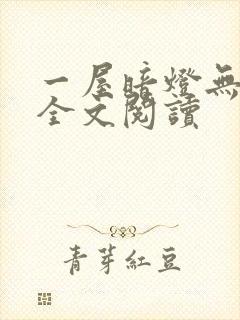 一屋暗燈無
全文閱讀
青芽紅豆